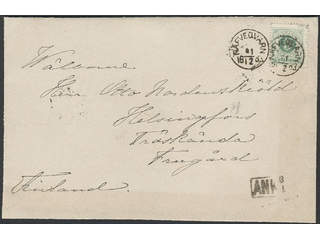 NÄFVEQVARN
Wälborne
Herr Otto Nordenskiöld
Helsingfors
Träskända
Frugård
Finland.
ANK